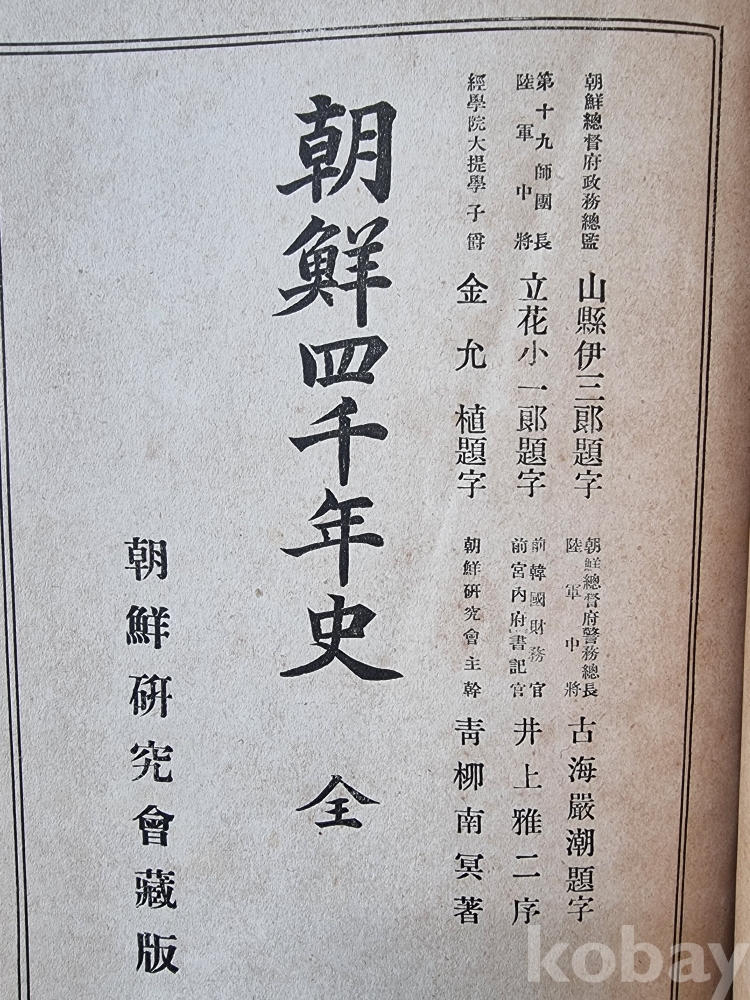 朝鮮總督府政務總監 山縣伊三郞題字
朝鮮總督府警務總長
陸軍中將 古海嚴潮題字
第十九師團長
陸軍中將 立花小一郞題字
前韓國財務官
前宮內府書記官 井上雅二序
經學院大提學子爵 金允植題字
朝鮮硏究會主幹 靑柳南冥著
朝鮮四千年史 全
朝鮮硏究會藏版
kobay